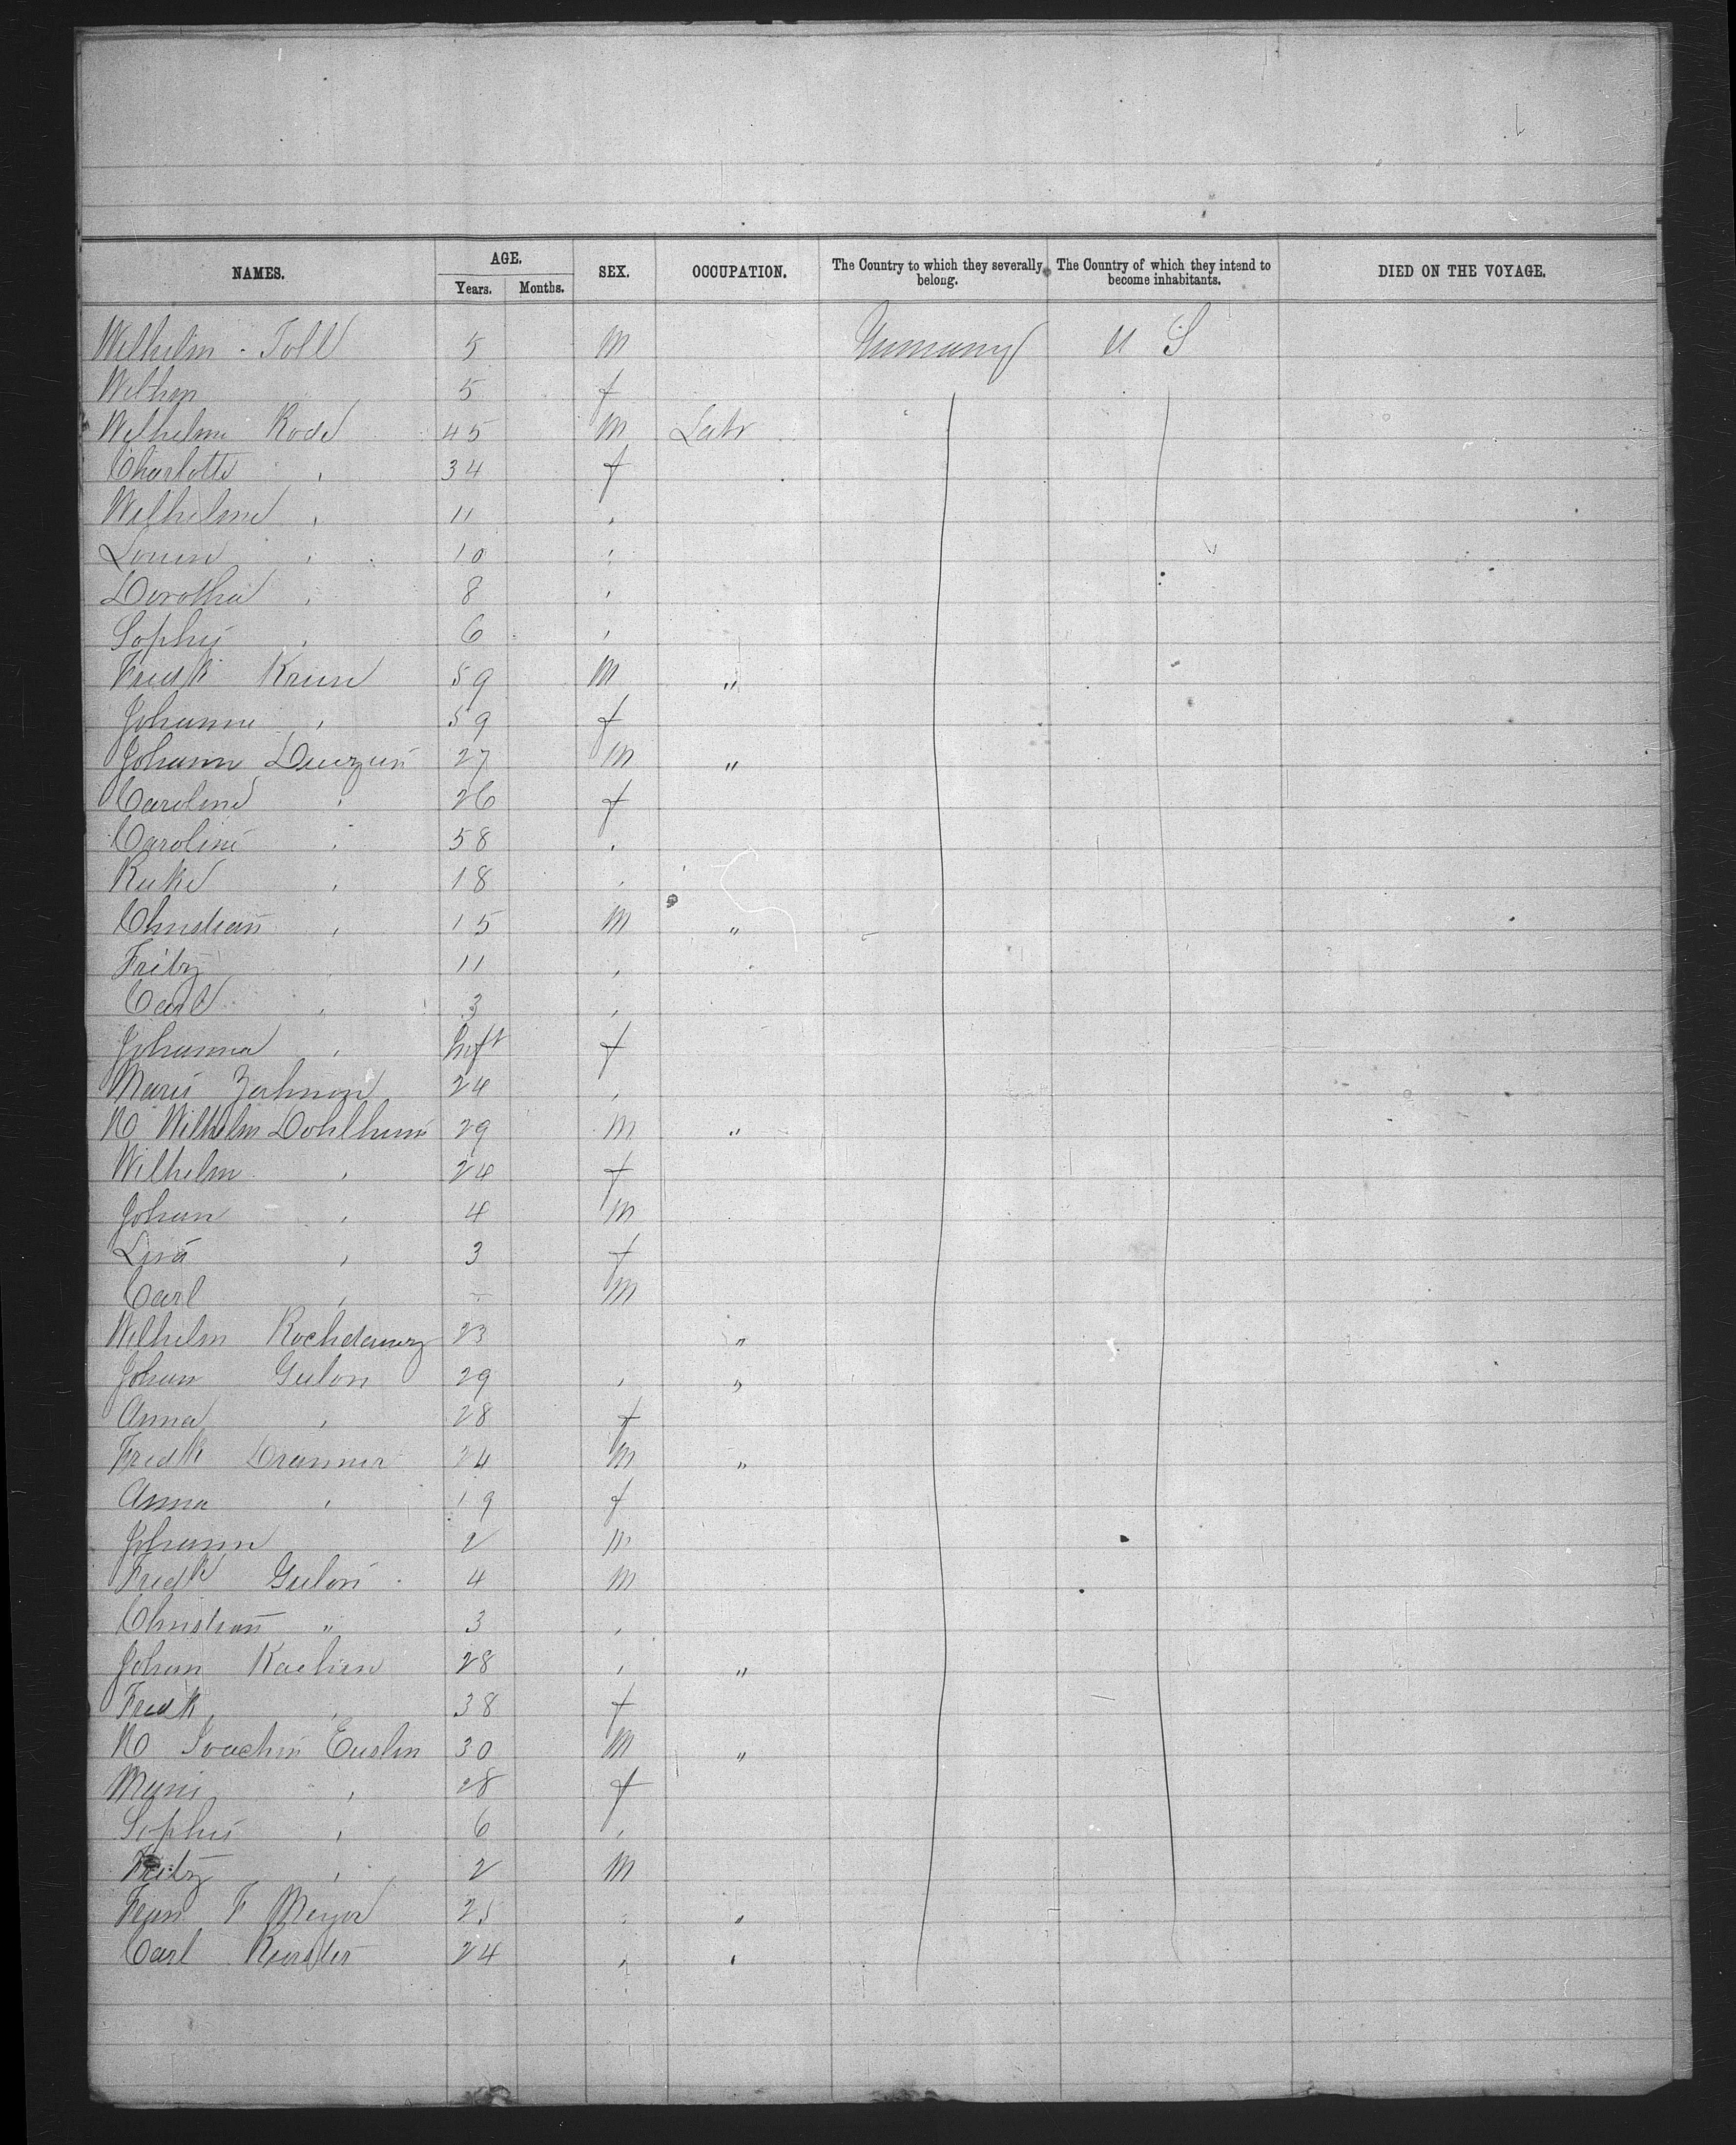 NAMES. AGE. SEX. OCCUPATION. The Country to which they severally belong. The Country of which they intend to become inhabitants. DIED ON THE VOYAGE.
Years. Months.
Wilhelm Toll 5 m Germany U S
5 f
Wilhelm Rode 45 m Labr
Charlotte , 34 f
Wilhelme , 11 ,
Louise , 10 ,
Dorothea , 8 ,
Sophie , 6 ,
Fredk Kruse 59 m "
Johanna , 59 f
Johann 27 m "
Caroline , 26 f
Caroline , 58 ,
Rieke , 18 ,
Christian , 15 m "
Fritz , 11 ,
Carl , 3 ,
Johanna , Inft f
Marie 24 ,
Wilhelm 29 m "
Wilhelm , 24 f
Johan , 4 m
Lisa , 3 f
Carl , m
Wilhelm 23 "
Johan Gulon 29 , "
Anna , 28 f
Fredk 24 m "
Anna , 19 f
Johann 2 m
Fredk Gulon 4 m
Christian " 3 ,
Johan 28 , "
Fredk , 38 f
Joachim 30 m "
, 28 f
Sophie , 6 ,
Fritz , 2 m
F Meyer 25 , "
Carl 24 , "